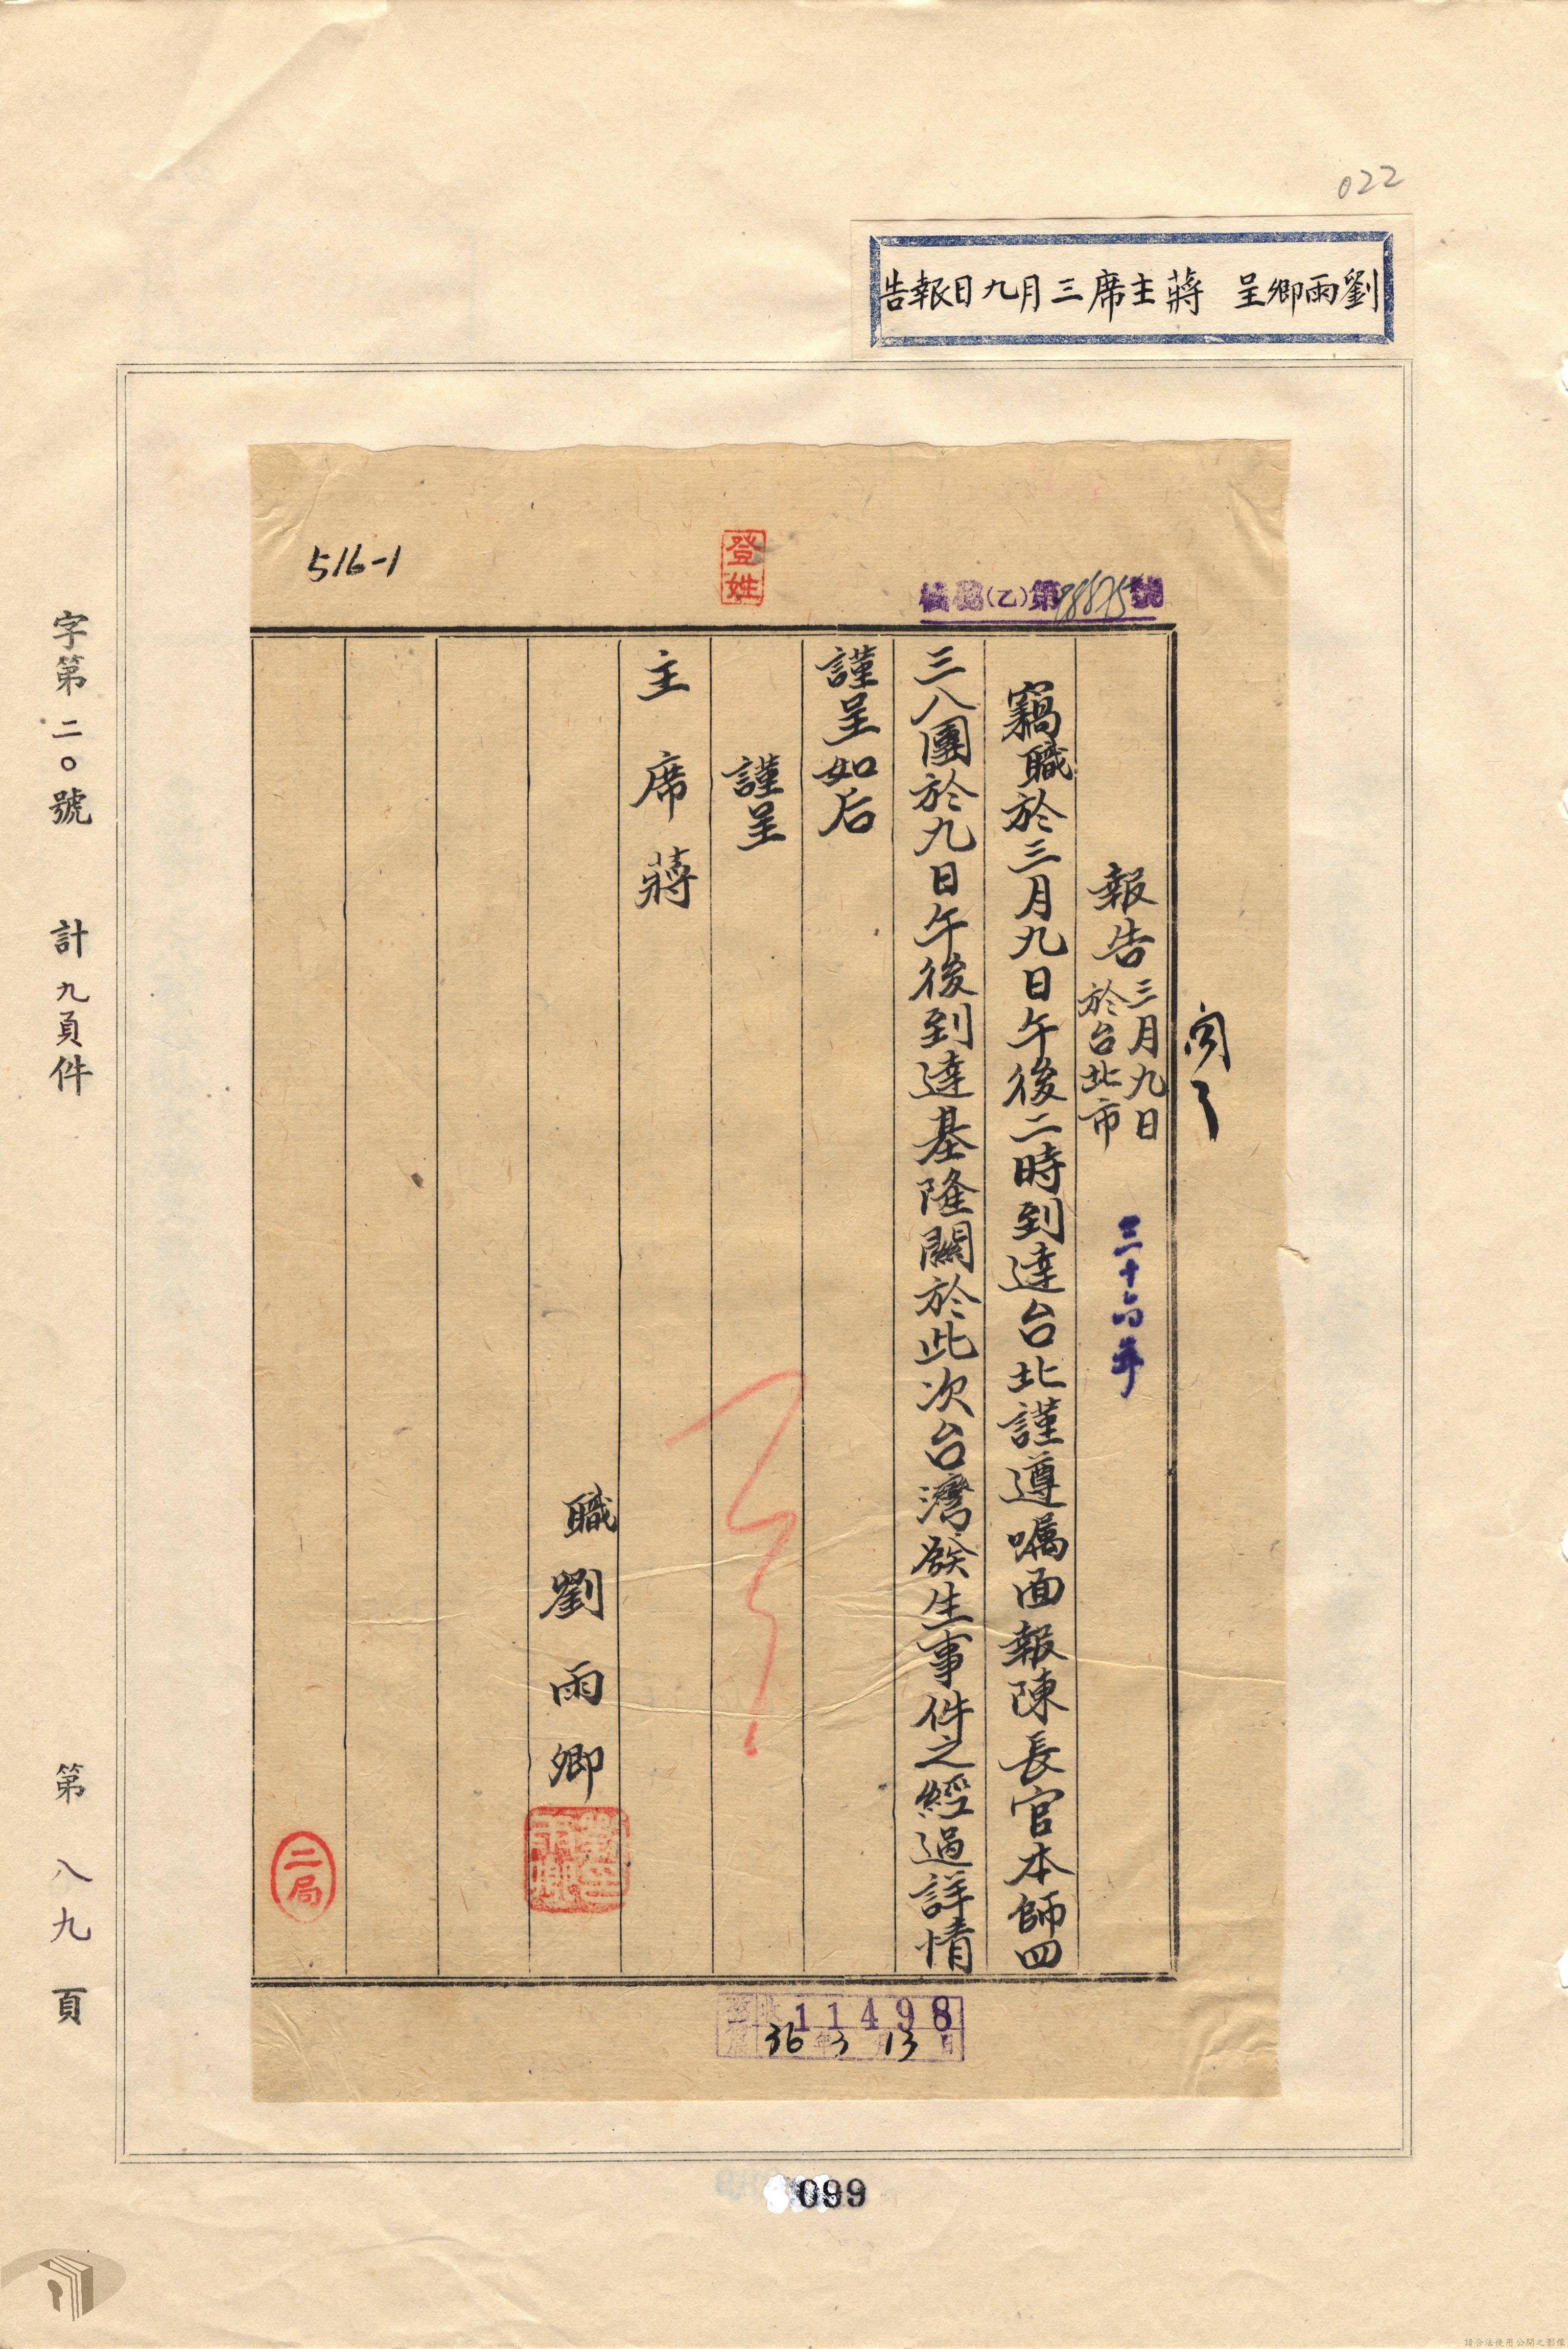 022
劉雨卿呈　蔣主席三月九日報告
516-1
登
(乙)第
號
閱
報告　三月九日
於台北市
三十六年
竊職於三月九日午後二時到達台北謹遵囑面報陳長官本師四
三八團於九日午後到達基隆關於此次台灣發生事件之經過詳情
謹呈如后
謹呈
主席蔣
職劉雨卿
二局
收 11498
36年3月13日
字第二〇號　計九頁件　第八九頁
099
請合法使用公開之影像